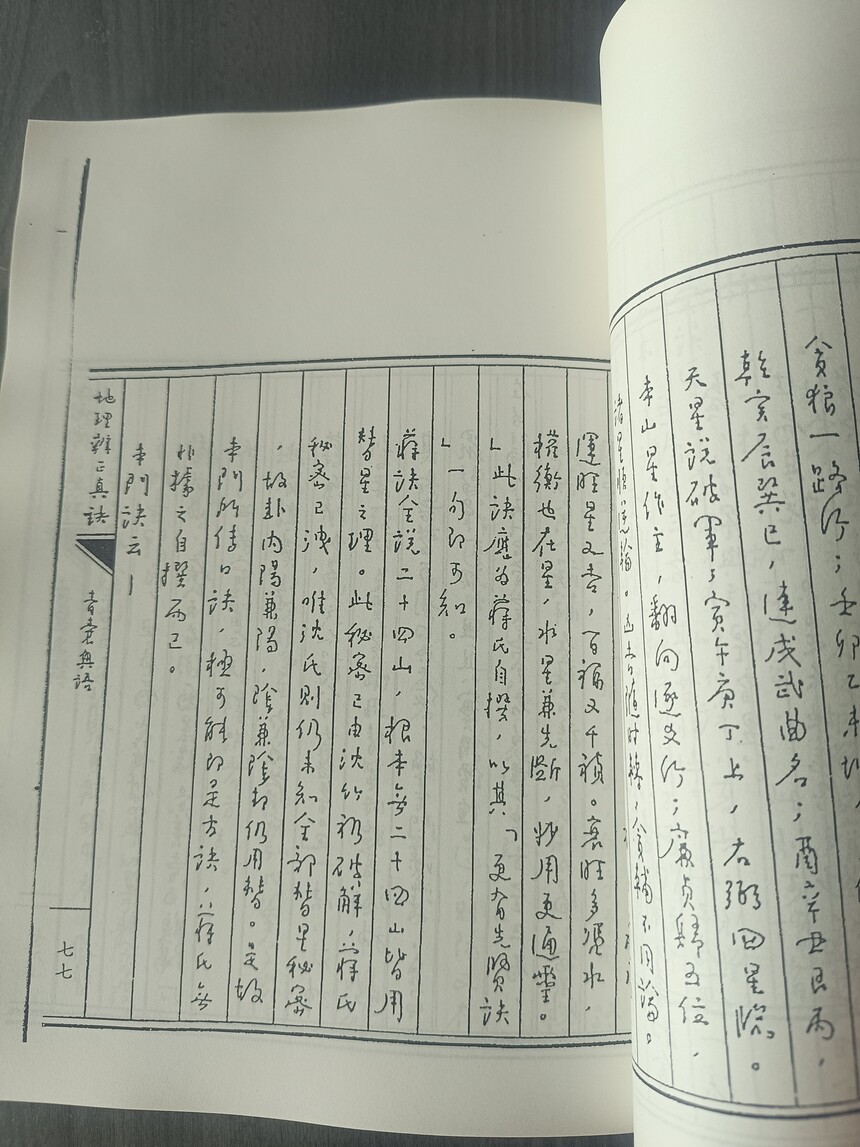 貪狼一路行;壬卯乙未坤,
乾亥辰巽巳,連戌武曲名;酉辛丑艮丙,
天星說破軍;寅午庚丁上,右弼四星臨。
本山星作主,翻向逐爻行;廉貞歸五位,
諸星順逆論。凶吉隨時替,貪輔不同論。
運旺星又吉,百福又千禎。衰旺多憑水,
權衡也在星,水星兼先斷,妙用更通靈。
」此訣應為蔣氏自撰,以其「更有先賢訣
」一句即可知。
蔣訣全說二十四山,根本無二十四山皆用
替星之理。此秘密已由沈竹礽破解,蔣氏
秘密已洩,唯沈氏則仍未知全部替星秘密
,故卦內陽兼陽,陰兼陰却仍用替。是故
本門所傳口訣,極可能即是古訣,蔣氏無
非據之自撰而已。
本門訣云—
地理辨正真訣
青囊奧語
七七